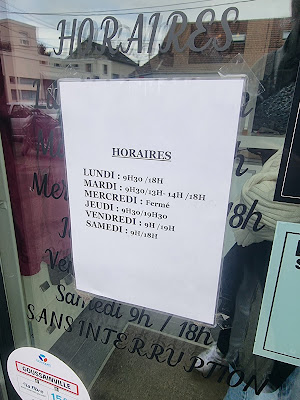 HORAIRES
HORAIRES
LUNDI : 9H30 /18H
MARDI : 9H30/13H- 14H /18H
MERCREDI : Fermé
JEUDI : 9H30/19H30
VENDREDI : 9H /19H
SAMEDI : 9H/18H
18h
Samedi 9h / 18h
SANS INTERRUPTION
GOUSSAINVILLE